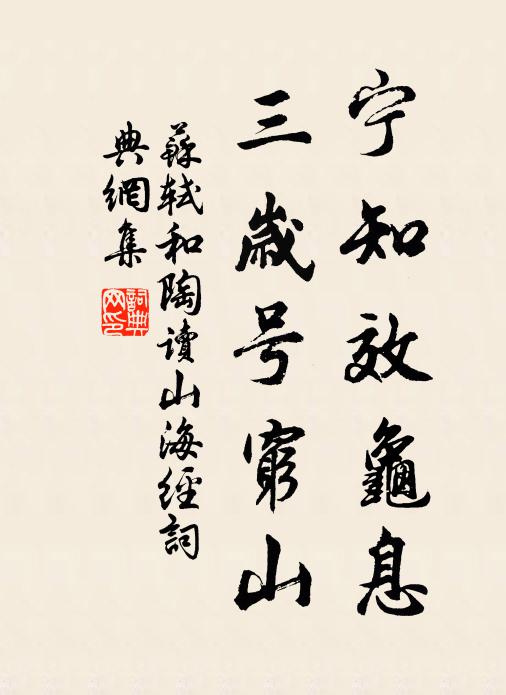 宁知效龜息
三歳号窮山
蘇轼和陶讀山海經詞
典網集
詞典
网印